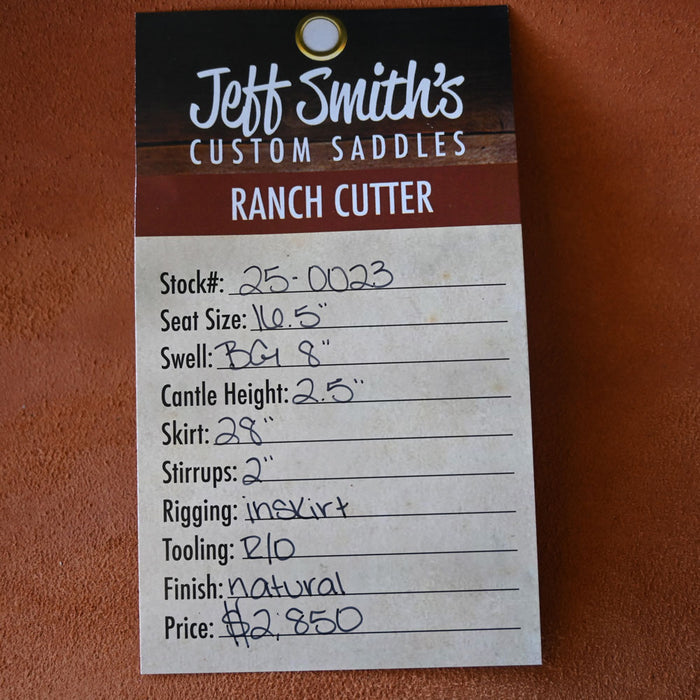 Jeff Smith's
CUSTOM SADDLES
RANCH CUTTER
Stock#: 25-0023
Seat Size: 16.5"
Swell: BG 8"
Cantle Height: 2.5"
Skirt: 28"
Stirrups: 2"
Rigging: inskirt
Tooling: R/O
Finish: natural
Price: $2,850